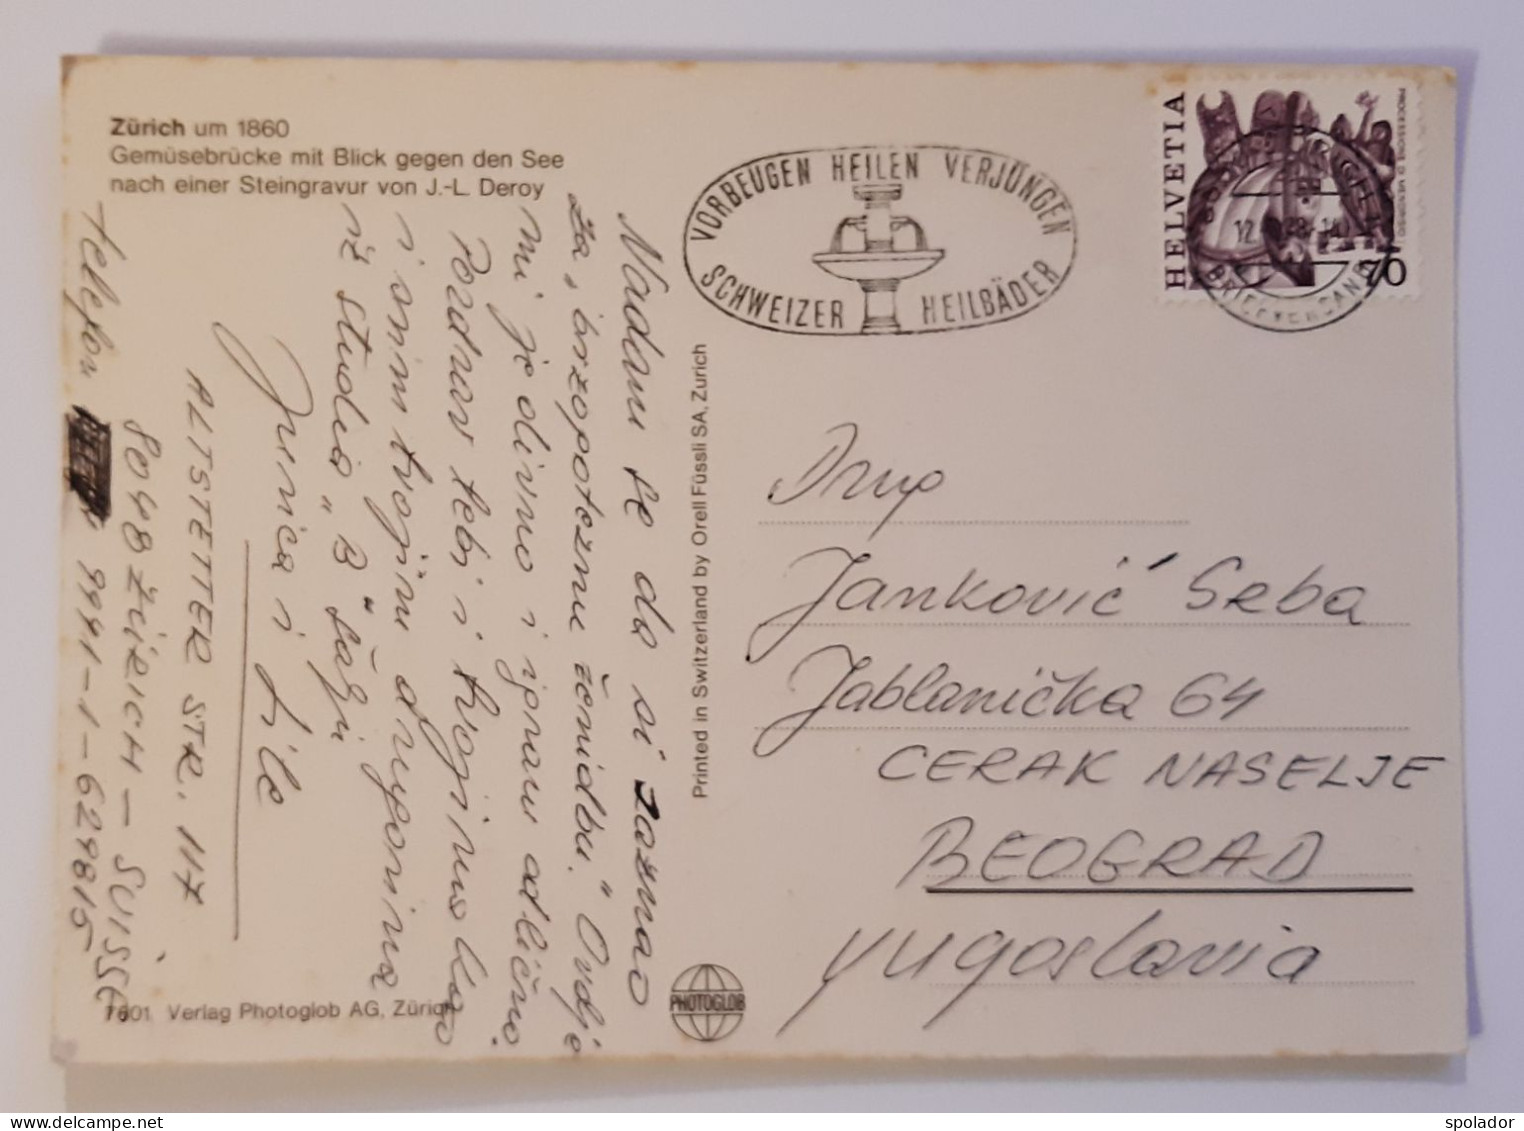 Zürich um 1860
Gemüsebrücke mit Blick gegen den See
nach einer Steingravur von J.-L. Deroy
Nadam se da si saznao
za "brzopoteznu ženidbu." Ovdje
mi je divno i ignam odlično.
Pozdrav tebi i tvojima kao
i svim tvojim drugovima
iz studia "B" šalju
Jurica i Lile
ALTSTETTER STR. 117
8048 ZÜRICH – SUISSE
telefon 9941-1-629815
7601 Verlag Photoglob AG, Zürich
PHOTOGLOB
Printed in Switzerland by Orell Füssli SA, Zurich
VORBEUGEN HEILEN VERJÜNGEN
SCHWEIZER HEILBÄDER
HELVETIA
70
BRIEFVERSAND
Drug
Janković Srba
Jablanička 64
CERAK NASELJE
BEOGRAD
Yugoslavia
spolador